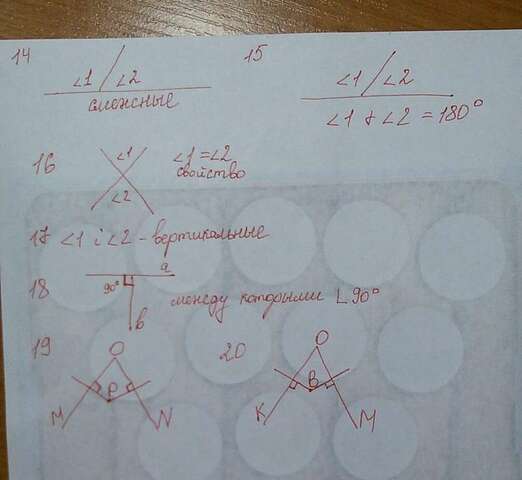 14
∠1 ∠2
смежные
15
∠1 ∠2
∠1 + ∠2 = 180°
16
∠1
∠2
∠1 = ∠2
свойство
17 ∠1 і ∠2 - вертикальные
18
a
90°
b
между которыми ∟90°
19
O
P
M N
20
O
B
K M